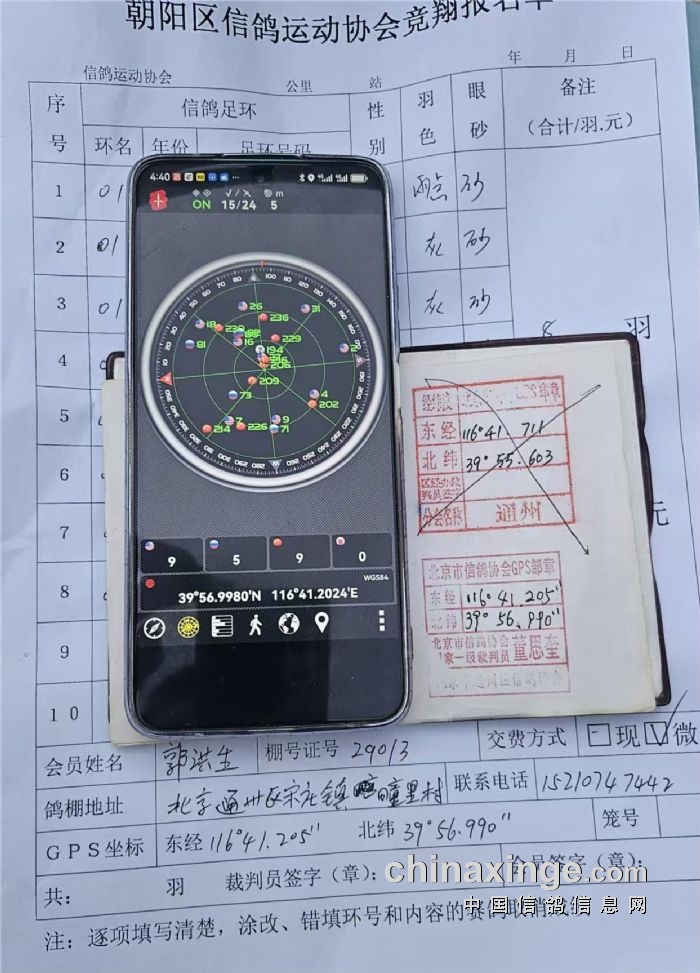 朝阳区信鸽运动协会竞翔报名单
年 月 日
信鸽运动协会 公里 站
序号 信鸽足环 性别 羽色 眼砂 备注
（合计/羽.元）
环名 年份 足环号码
1 01 雨点 砂
2 01 灰 砂
3 01 灰 砂
4
5
6
7
8
9
10
羽
元
4:40
ON 15/24 5 m
26 31
236
18
229
81 16
194
206
209
73 4
202
214 7 226 9
71
9 5 9 0
WGS84
39°56.9980'N 116°41.2024'E
东经 116°41. 711
北纬 39°55.603
分会名称 通州
北京市信鸽协会GPS部章
东经 116°41.205"
北纬 39°56.990"
北京市信鸽协会
国家一级裁判员 董思奎
会员姓名 郭洪生 棚号证号 29013 交费方式 现 微
鸽棚地址 北京通州区宋庄镇疃里村 联系电话 15210747442
GPS坐标 东经 116°41.205" 北纬 39°56.990" 笼号
共： 羽 裁判员签字（章）： 会员签字（章）：
注：逐项填写清楚，涂改、错填环号和内容的赛鸽取消成绩
chinaxinge.com
中国信鸽信息网